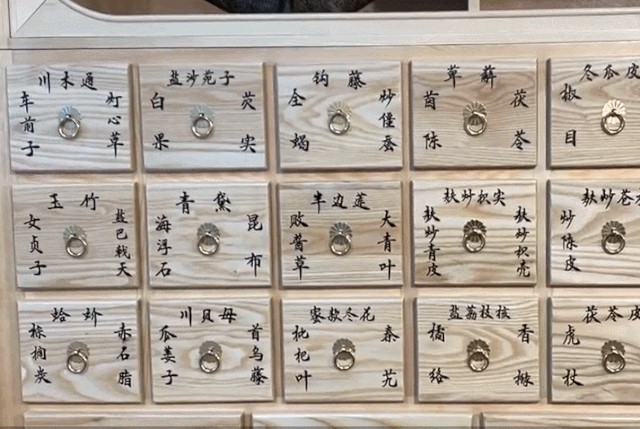 川木通
车前子
灯心草
盐沙苑子
白果
芡实
钩藤
全蝎
炒僵蚕
萆薢
茵陈
茯苓
冬瓜皮
椒目
玉竹
女贞子
盐巴戟天
青黛
海浮石
昆布
半边莲
败酱草
大青叶
麸炒枳实
麸炒青皮
麸炒枳壳
麸炒苍
炒陈皮
蛤蚧
棕榈炭
赤石脂
川贝母
瓜蒌子
首乌藤
蜜款冬花
枇杷叶
秦艽
盐荔枝核
橘络
香橼
茯苓皮
虎杖